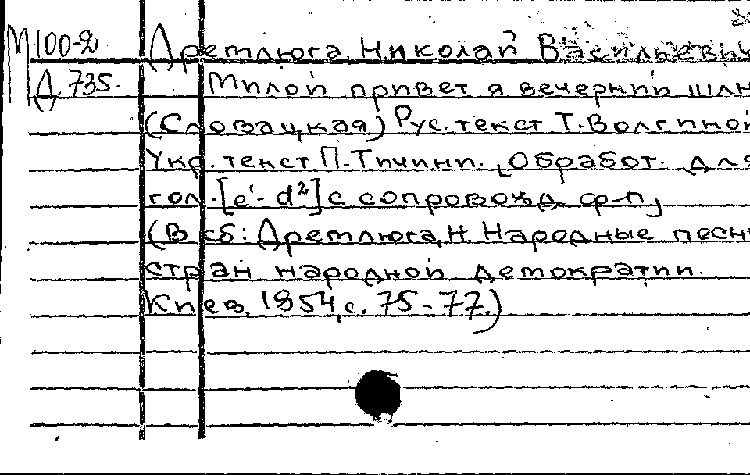 М 100-2 Дремлюга, Николай Васильевич
Д 735. Милой привет я вечерний шлю
(Словацкая) Рус. текст Т. Волгиной
Укр. текст П. Тичини. Обработ. для
гол. [e'- d²] с сопровожд. ф-п,
(В сб: Дремлюга, Н. Народные песни
стран народной демократии.
Киев, 1954, с. 75-77.)